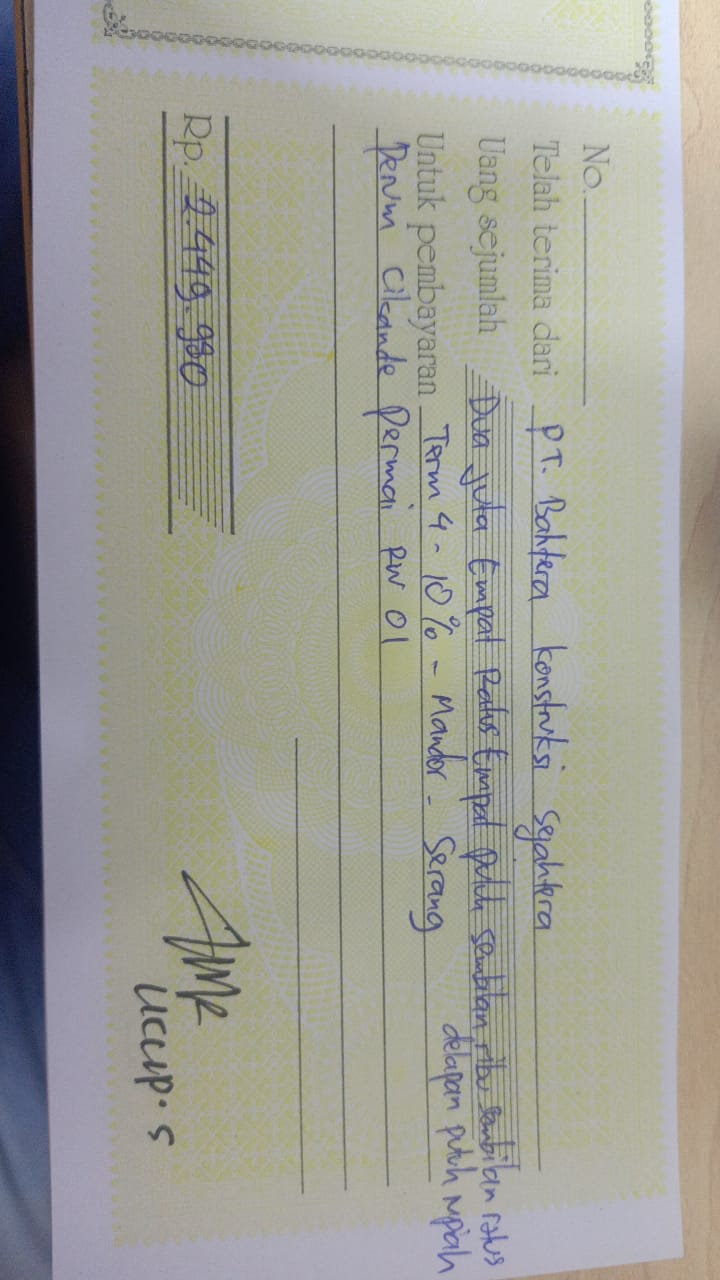 No.
Telah terima dari PT. Bahtera konstruksi Sejahtera
Uang sejumlah Dua juta Empat Ratus Empat puluh sembilan ribu sembilan ratus
delapan puluh rupiah
Untuk pembayaran Term 4 - 10% - Mandor - Serang
Perum Cikande Permai RW 01
Rp. 2.449.980
Ucup. S